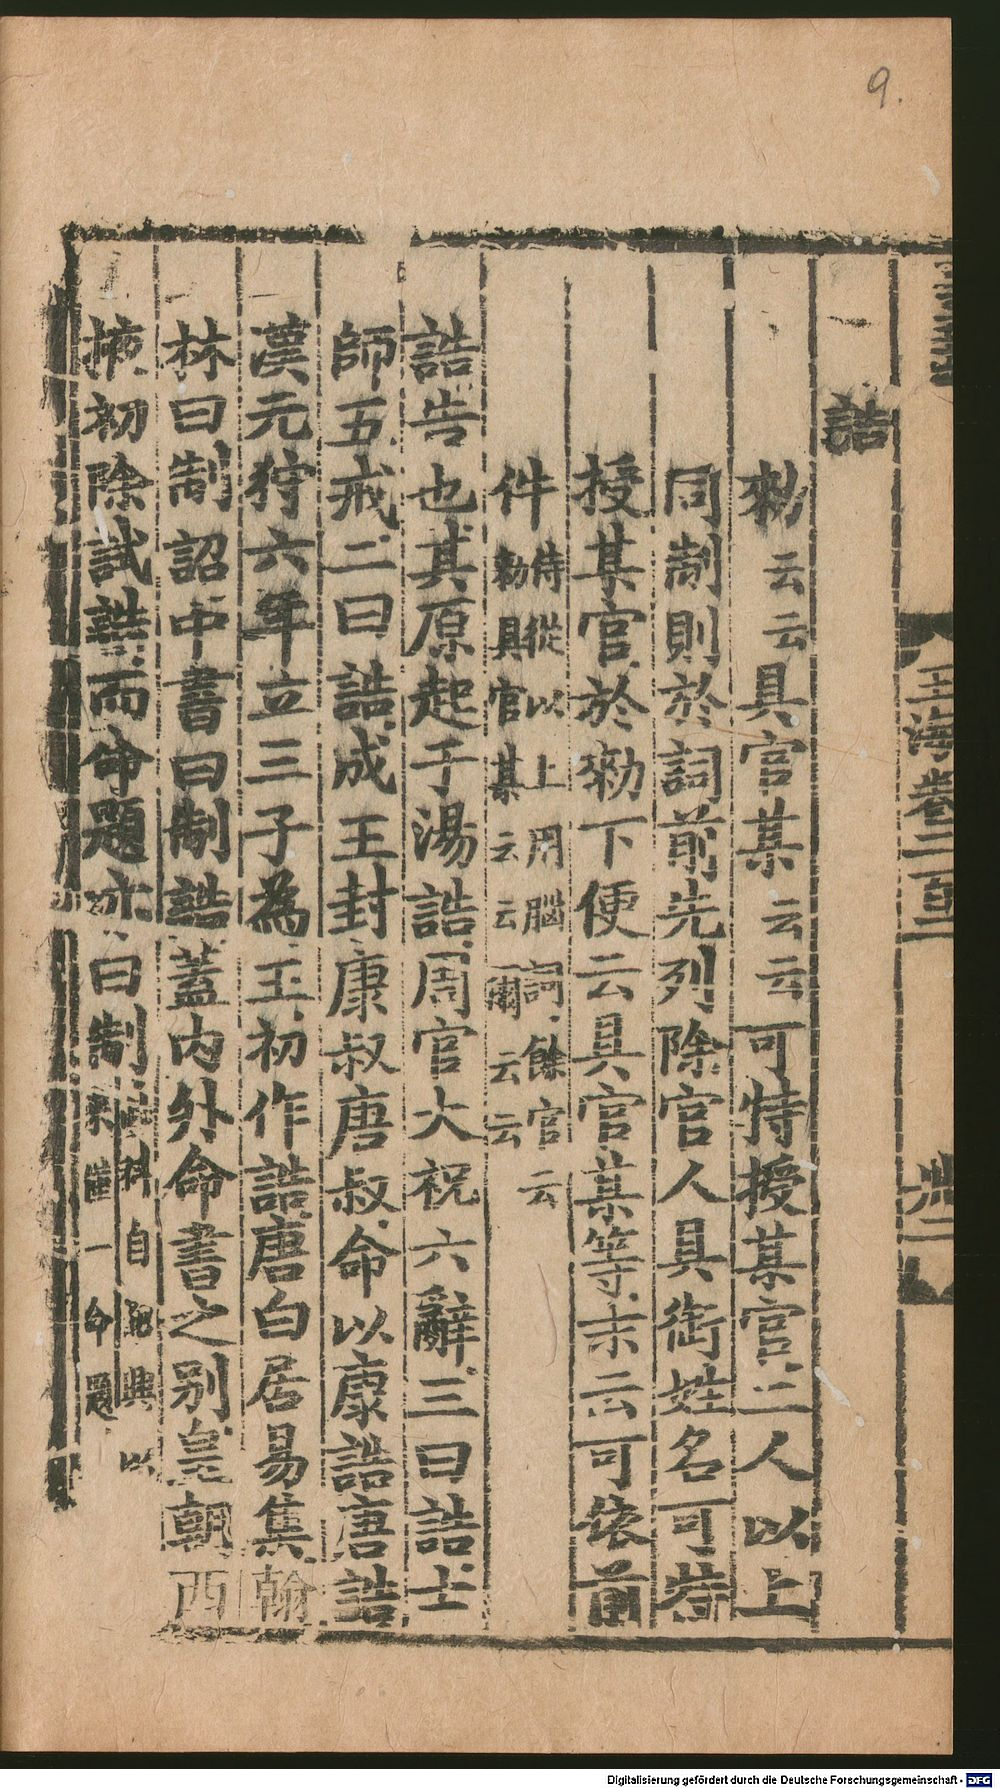 9.
玉海卷二百二
誥
勑云云具官某云云可特授某官二人以上
同制則於詞前先列除官人具銜姓名可特
授某官於勑下便云具官某等末云可依前
件侍從以上用腦詞餘官云
勑具官某云云爾云云
誥告也其原起于湯誥周官大祝六辭三曰誥士
師五戒二曰誥成王封康叔唐叔命以康誥唐誥
漢元狩六年立三子為王初作誥唐白居易集翰
林曰制詔中書曰制誥蓋內外命書之別皇朝西
掖初除試誥而命題亦曰制科自紹興以
來僅一命題
Digitalisierung gefördert durch die Deutsche Forschungsgemeinschaft - DFG